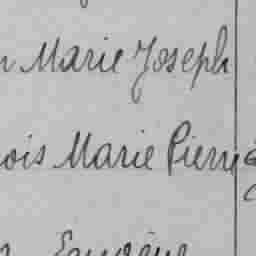 n Marie Joseph
ois Marie Pierre